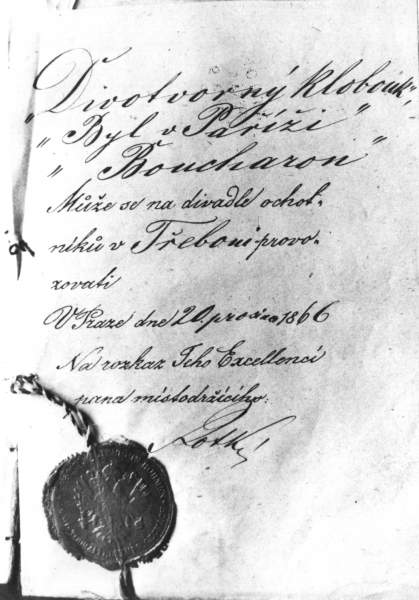 „Divotvorný klobouk„
„Byl v Paříži"
„Boucharon"
Může se na divadle ochot-
níků v Třeboni provo-
zovati
V Praze dne 20. prosince 1866
Na rozkaz Jeho Excellencí
pana místodržícího: